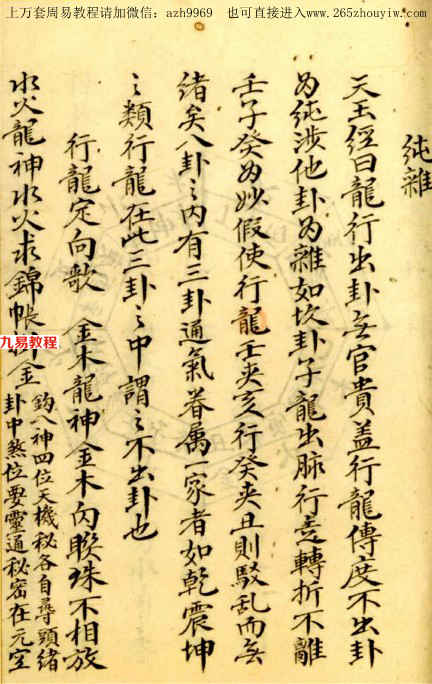 上万套周易教程请加微信：azh9969 也可直接进入www.265zhouyiw.com
纯雜
天玉經曰龍行出卦无官貴盖行龍傳度不出卦
为纯涉他卦为雜如坎卦子龍出脉行迢轉折不離
壬子癸为妙假使行龍壬夾亥行癸夾丑則駁乱而无
緒矣八卦之内有三卦通氣眷属一家者如乾震坤
之類行龍在此三卦之中謂之不出卦也
行龍定向歌 金木龍神金木向聮珠不相放
水火龍神水火求錦帳 金鈎八神四位天機秘各自尋頭緒
卦中煞位要靈通秘密在元空
九易教程